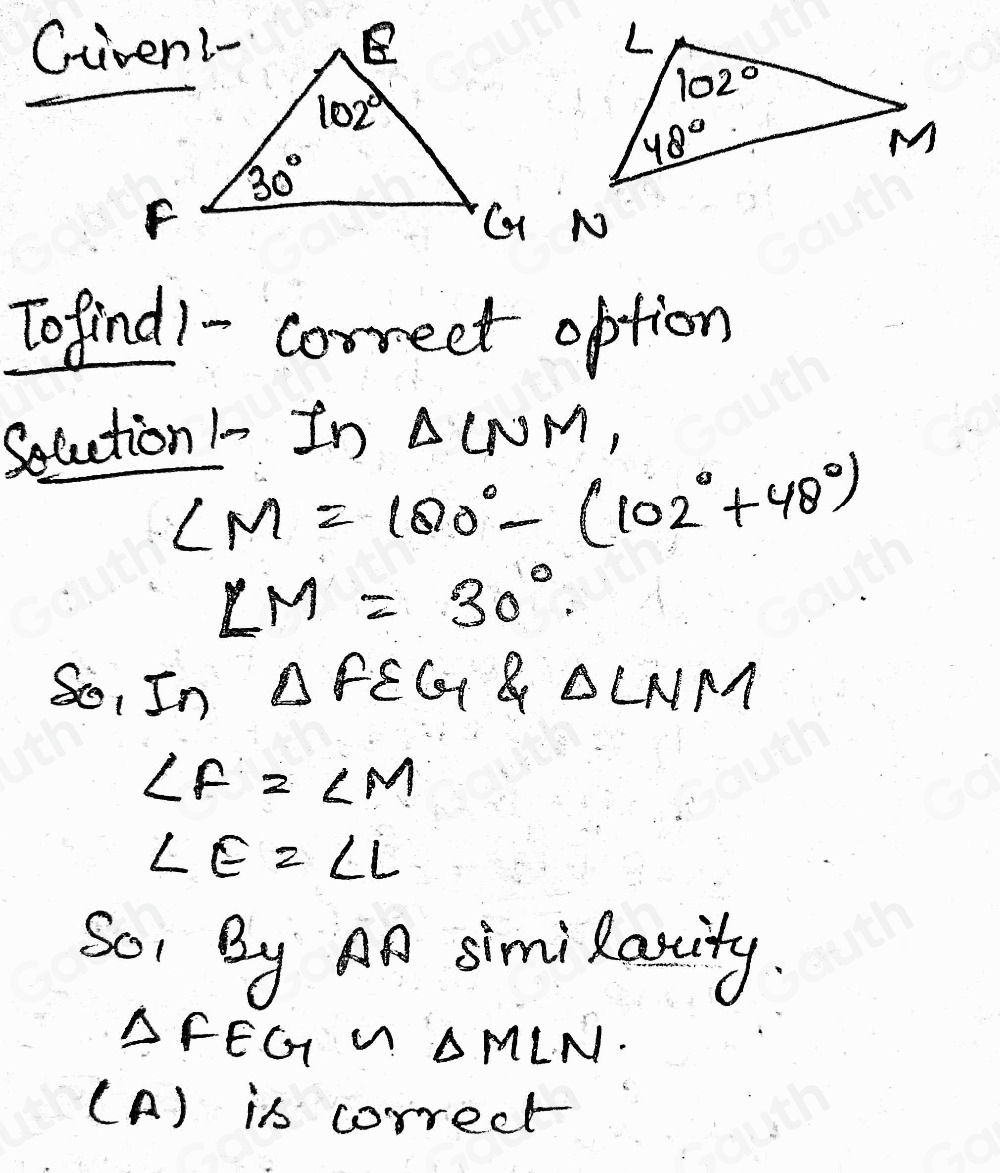 Given:-
E
102°
30°
F
G
L
102°
48°
M
N
To find:- correct option
Solution:- In Δ LNM,
∠M = 180° - (102° + 48°)
∠M = 30°.
So, In Δ FEG & Δ LNM
∠F = ∠M
∠E = ∠L
So, By AA similarity.
Δ FEG ~ Δ MLN.
(A) is correct